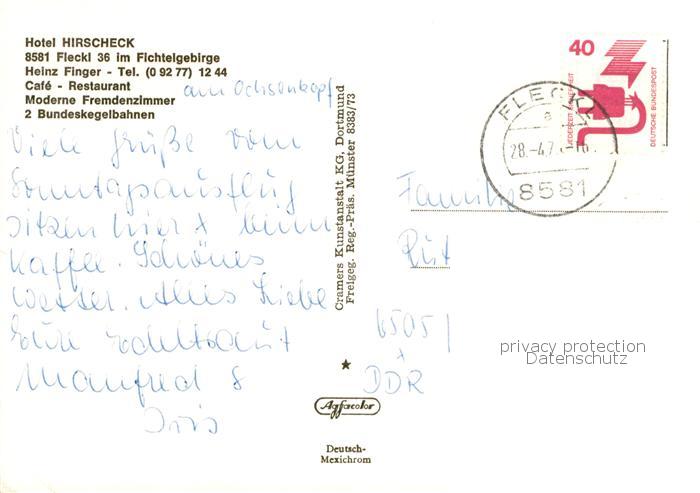 Hotel HIRSCHECK
8581 Fleckl 36 im Fichtelgebirge
Heinz Finger - Tel. (0 92 77) 12 44
Café - Restaurant
Moderne Fremdenzimmer
2 Bundeskegelbahnen
am Ochsenkopf
Viele Grüße vom
Sonntagsausflug
sitzen hier beim
Kaffee. Schönes
Wetter. Alles Liebe
Eure
Manfred &
Iris
Cramers Kunstanstalt KG, Dortmund
Freigeg. Reg.-Präs. Münster 8383/73
Agfacolor
Deutsch-
Mexichrom
40
JEDERZEIT SICHERHEIT
DEUTSCHE BUNDESPOST
FLECKL
a
28.-4.7
8581
Familie
Rut
6505
DDR
privacy protection
Datenschutz